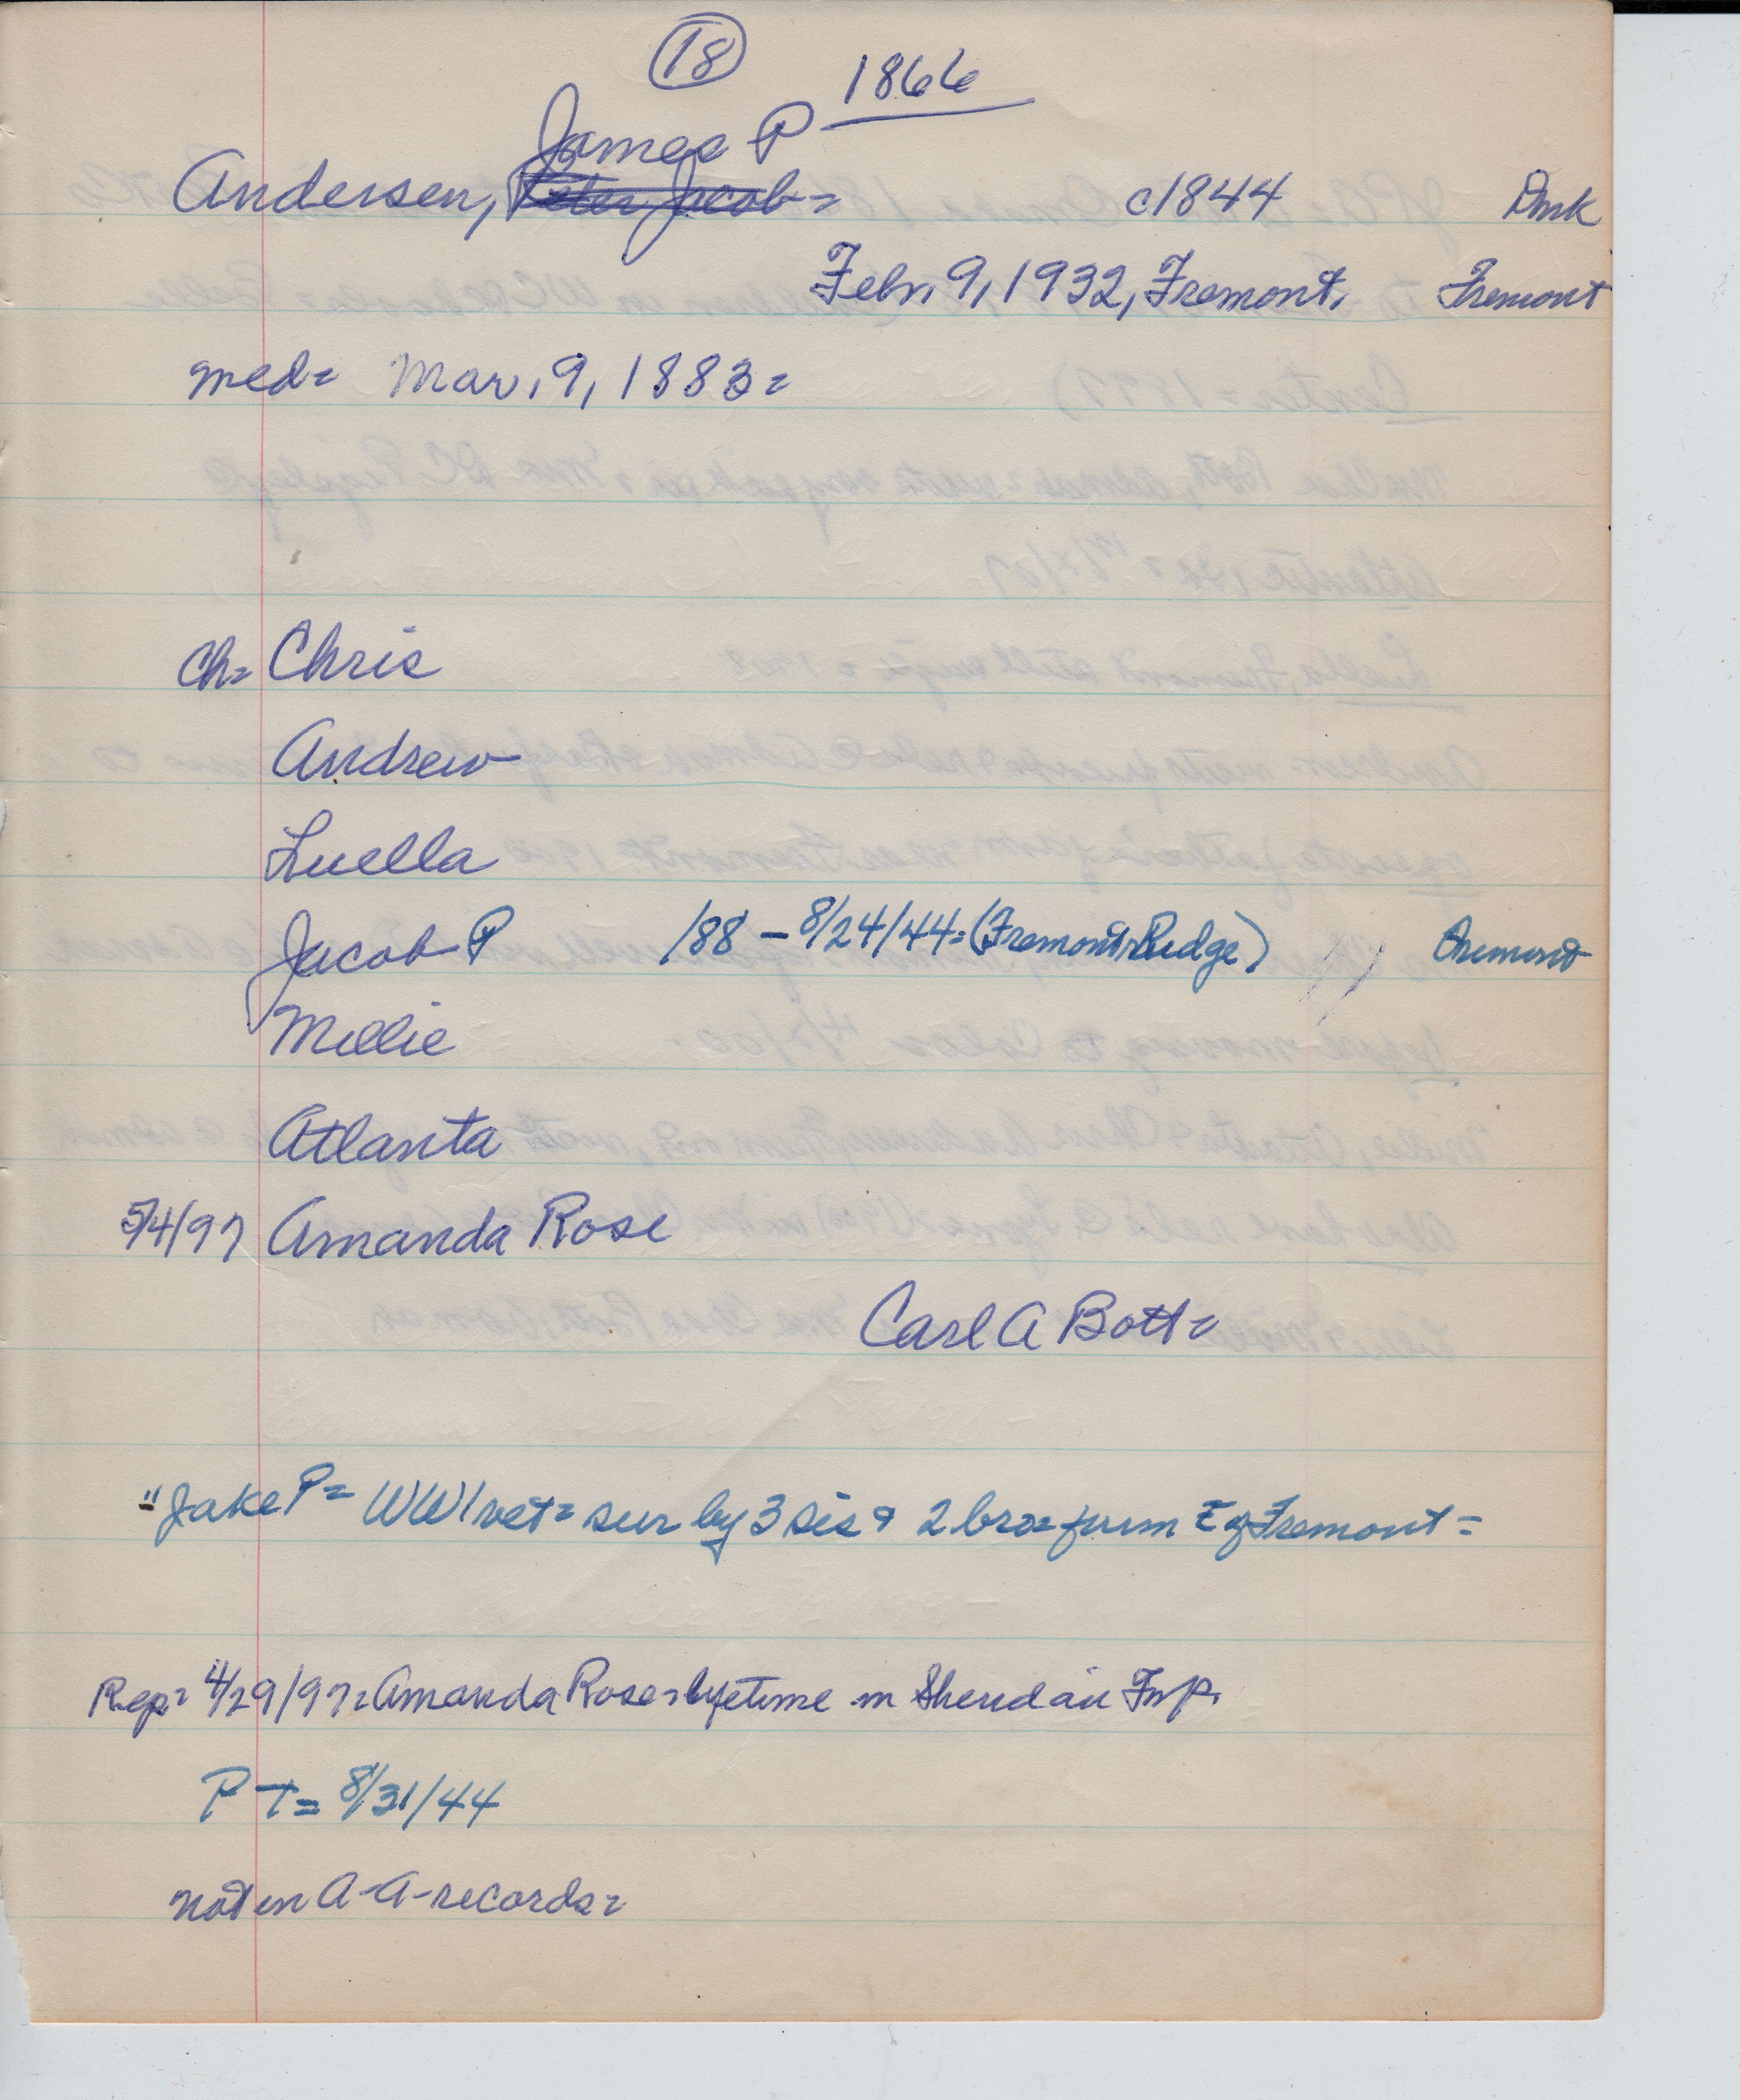 18
1866
James P
Andersen, Peter Jacob= c1844 Dmk
Febr. 9, 1932, Fremont, Fremont
med= Mar. 9, 1883=
Ch= Chris
Andrew
Luella
Jacob P 188 – 8/24/44=(Fremont Ridge) Fremont
Millie
Atlanta
5/4/97 Amanda Rose
Carl A Bott=
"Jake P= WW1 vet= sur by 3 sis & 2 bros= farm E of Fremont=
Rep= 4/29/97= Amanda Rose= lifetime in Sheridan Twp.
P T= 8/31/44
not in A-A-records=